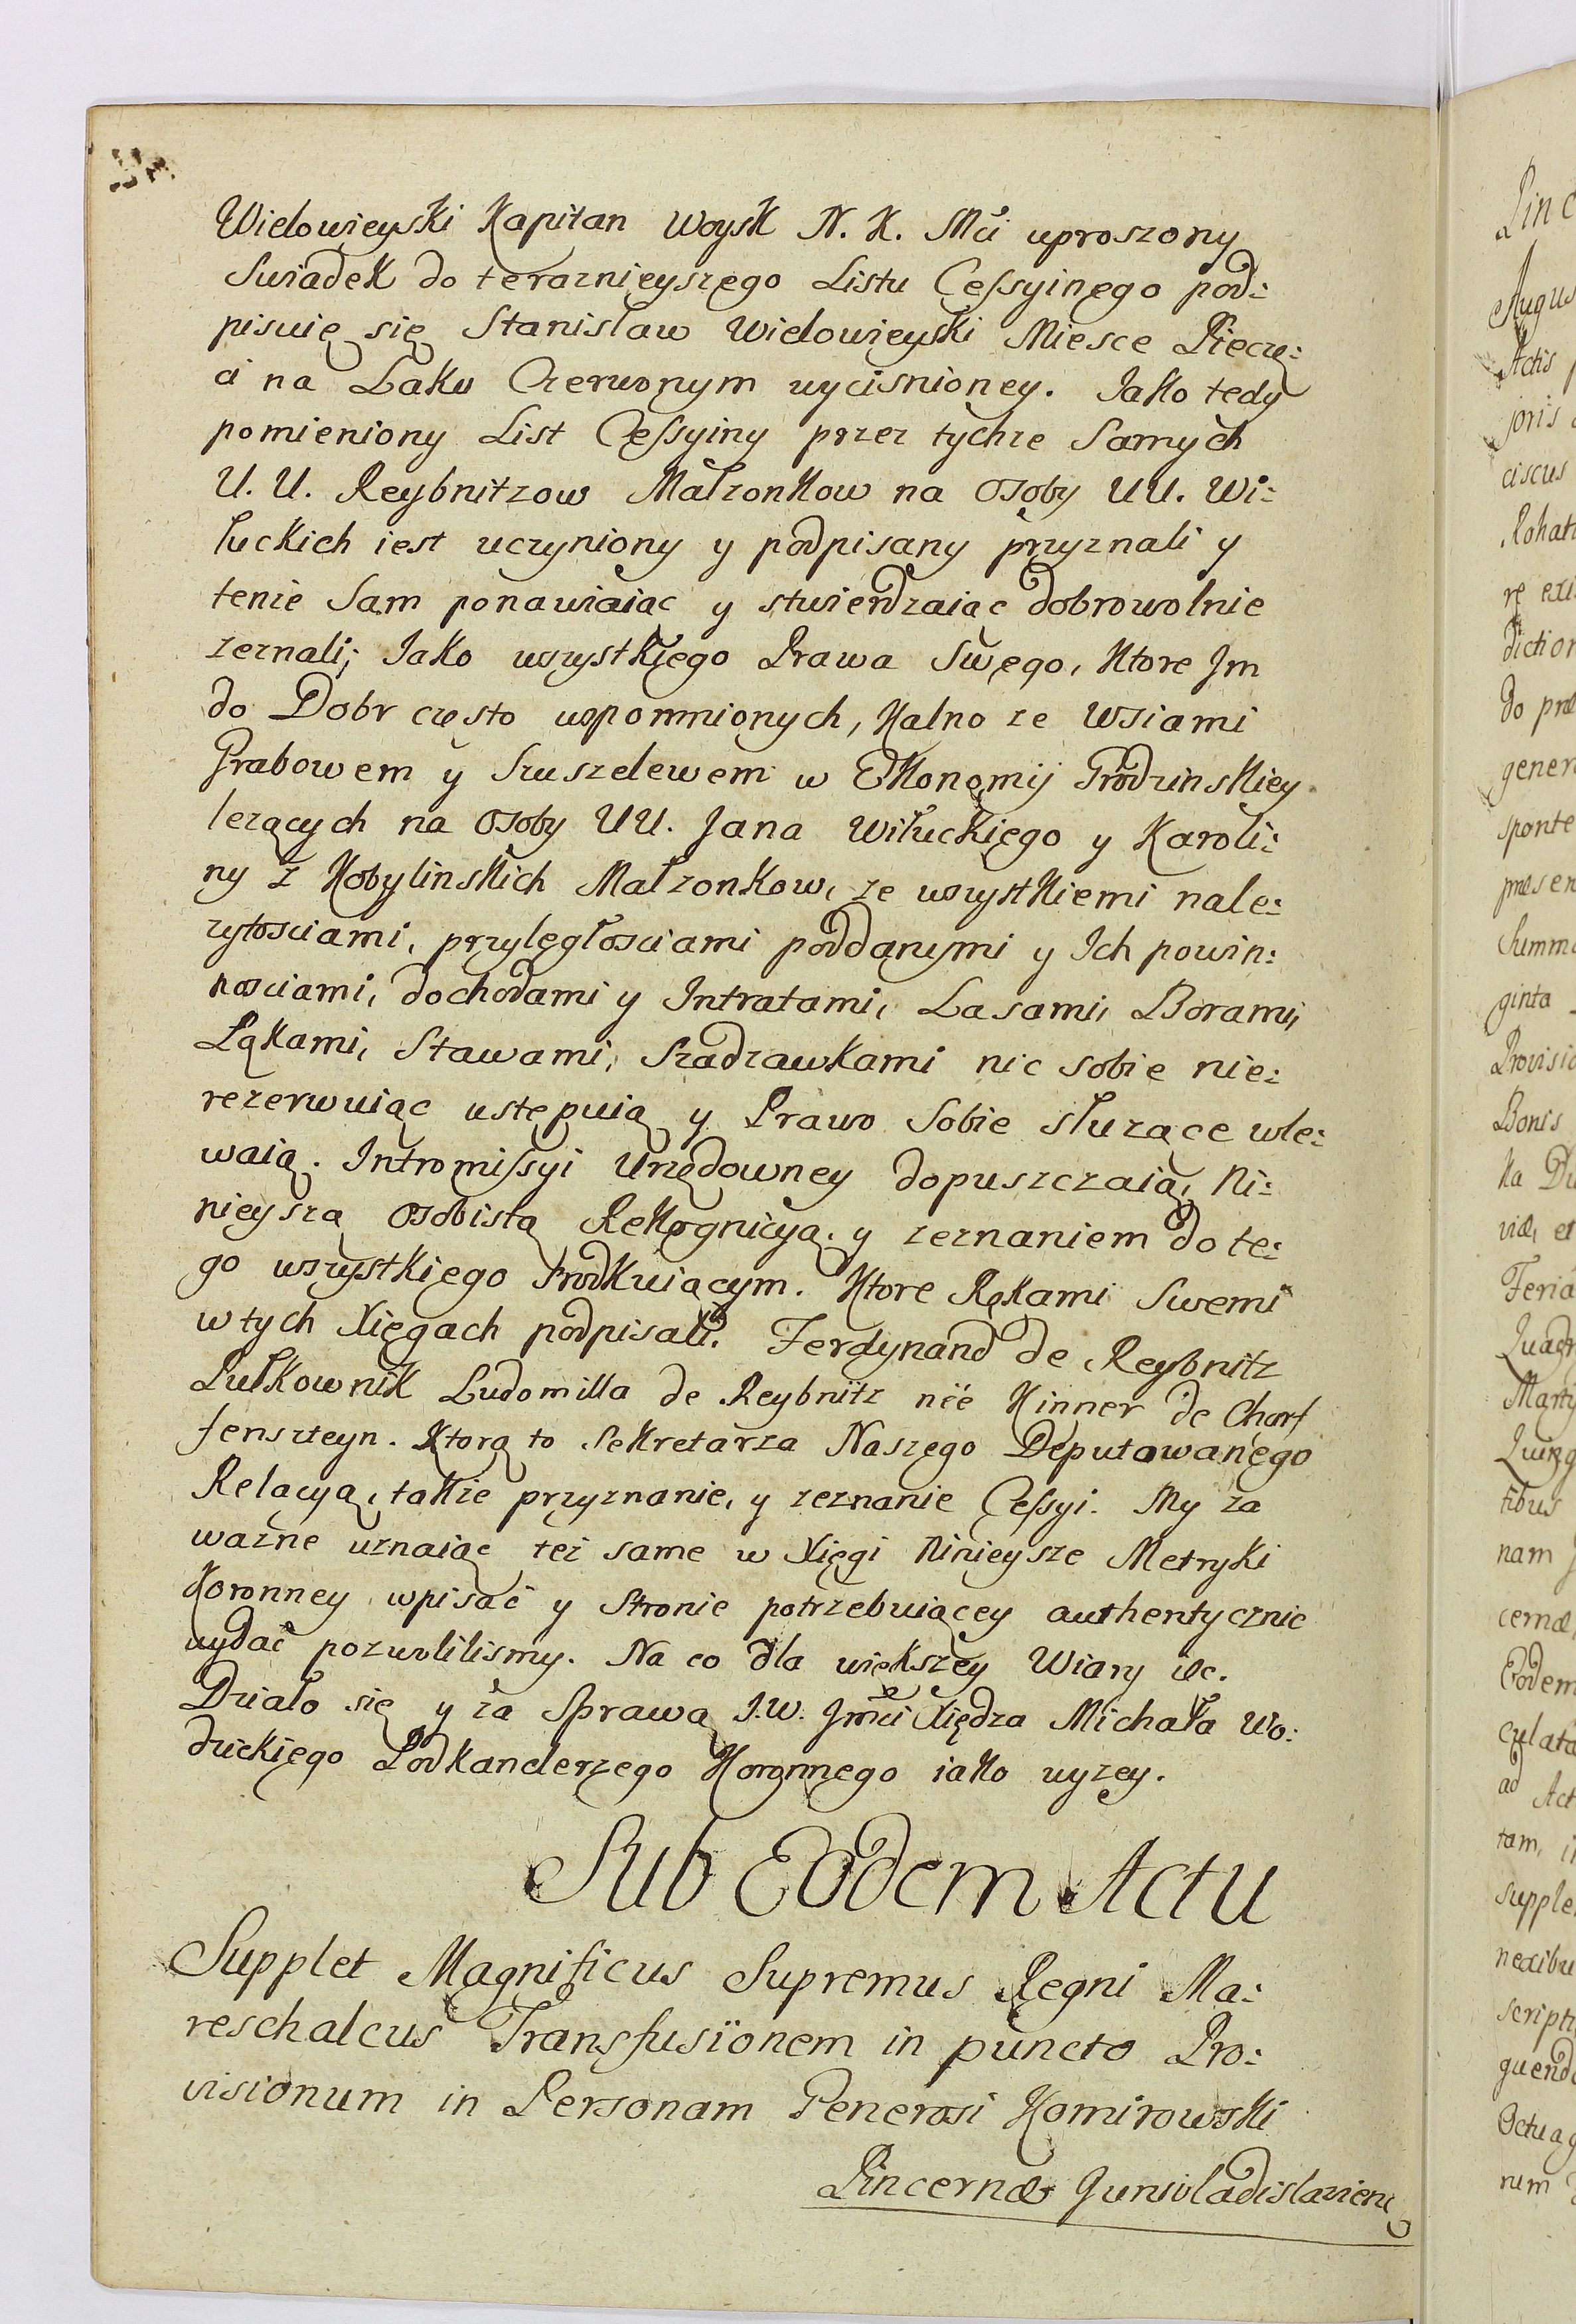 Wielowieyski Kapitan Woysk N. K. Mci uproszony
Swiadek do teraznieyszego Listu Cessyinego pod:
pisuię się Stanisław Wielowieyski Miesce Pieczę:
ci na Laku Czerwonym wycisnioney. Jako tedy
pomieniony List Cessyiny przez tychze Samych
U. U. Reybnitzow Małzonkow na Osoby UU. Wi:
łuckich iest uczyniony y podpisany przyznali y
tenze Sam ponawiaiąc y stwierdzaiąc dobrowolnie
zeznali; Jako wszystkiego Prawa Swego, Ktore Jm
do Dobr często wspomnionych, Kalno ze Wsiami
Grabowem y Szuszelewem w Ekonomij Grodzinskiey
lezących na Osoby UU. Jana Wiłuckiego y Karoli:
ny z Kobylinskich Małzonkow, ze wszystkiemi nale:
zytosciami, przyległosciami poddanymi y Ich powin:
nosciami, dochodami y Intratami, Lasami, Borami,
Łąkami, Stawami, Szadzawkami nic sobie nie:
rezerwuiąc ustępuią y Prawo Sobie służące wle:
waią. Intromissyi Urzędowney dopuszczaią, Ni:
nieyszą Osobistą Rekognicyą, y zeznaniem do te:
go wszystkiego srodkuiącym. Ktore Rękami Swemi
w tych Xięgach podpisali. Ferdynand de Reybnitz
Pułkownik Ludomilla de Reybnitz née Kinner de Charf
fenszteyn. Ktorą to Sekretarza Naszego Deputowanego
Relacyą, takze przyznanie, y zeznanie Cessyi. My za
wazne uznaiąc też same w Xięgi Ninieysze Metryki
Koronney wpisać y Stronie potrzebuiącey authentycznie
wydać pozwolilismy. Na co dla większey Wiary &c.
Działo się y za Sprawą J. W. Jmći Xiędza Michała Wo:
dzickiego Podkanclerzego Koronnego iako wyzey.
Sub Eodem Actu
Supplet Magnificus Supremus Regni Ma:
reschalcus Transfusionem in puncto Pro:
visionum in Personam Generosi Komirowski
Pincernæ Junivladislaviens
Pinc
Augus
Actis
joris
ciscus
Rohat
re exi
diction
do præ
gener
sponte
præsen
Summa
ginta
Provisio
Bonis
Ka Du
viæ, et
Feria
Quadr
Marty
Quing
tibus
nam
cernæ
Eodem
culata
ad Act
tam, in
supple
nexibu
scripti
guendo
Octuag
num